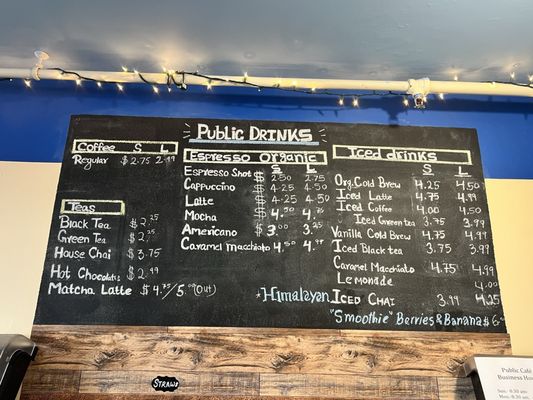 Public DRINKS
Coffee S L
Regular $2.75 2.99
Teas
Black Tea $2.25
Green Tea $2.25
House Chai $3.75
Hot Chocolate $2.99
Matcha Latte $4.75/5.00 (Out)
Espresso Organic
S L
Espresso Shot $2.50 2.75
Cappuccino $4.25 4.50
Latte $4.25 4.50
Mocha $4.50 4.75
Americano $3.00 3.25
Caramel Macchiato 4.50 4.99
Iced drinks
S L
Org. Cold Brew 4.25 4.50
Iced Latte 4.75 4.99
Iced Coffee 4.00 4.50
Iced Green tea 3.75 3.99
Vanilla Cold Brew 4.75 4.99
Iced Black tea 3.75 3.99
Caramel Macchiato 4.75 4.99
Lemonade 4.00
*Himalayan Iced CHAI 3.99 4.25
"Smoothie" Berries & Banana $6
STRAWS
Public Café
Business Hou